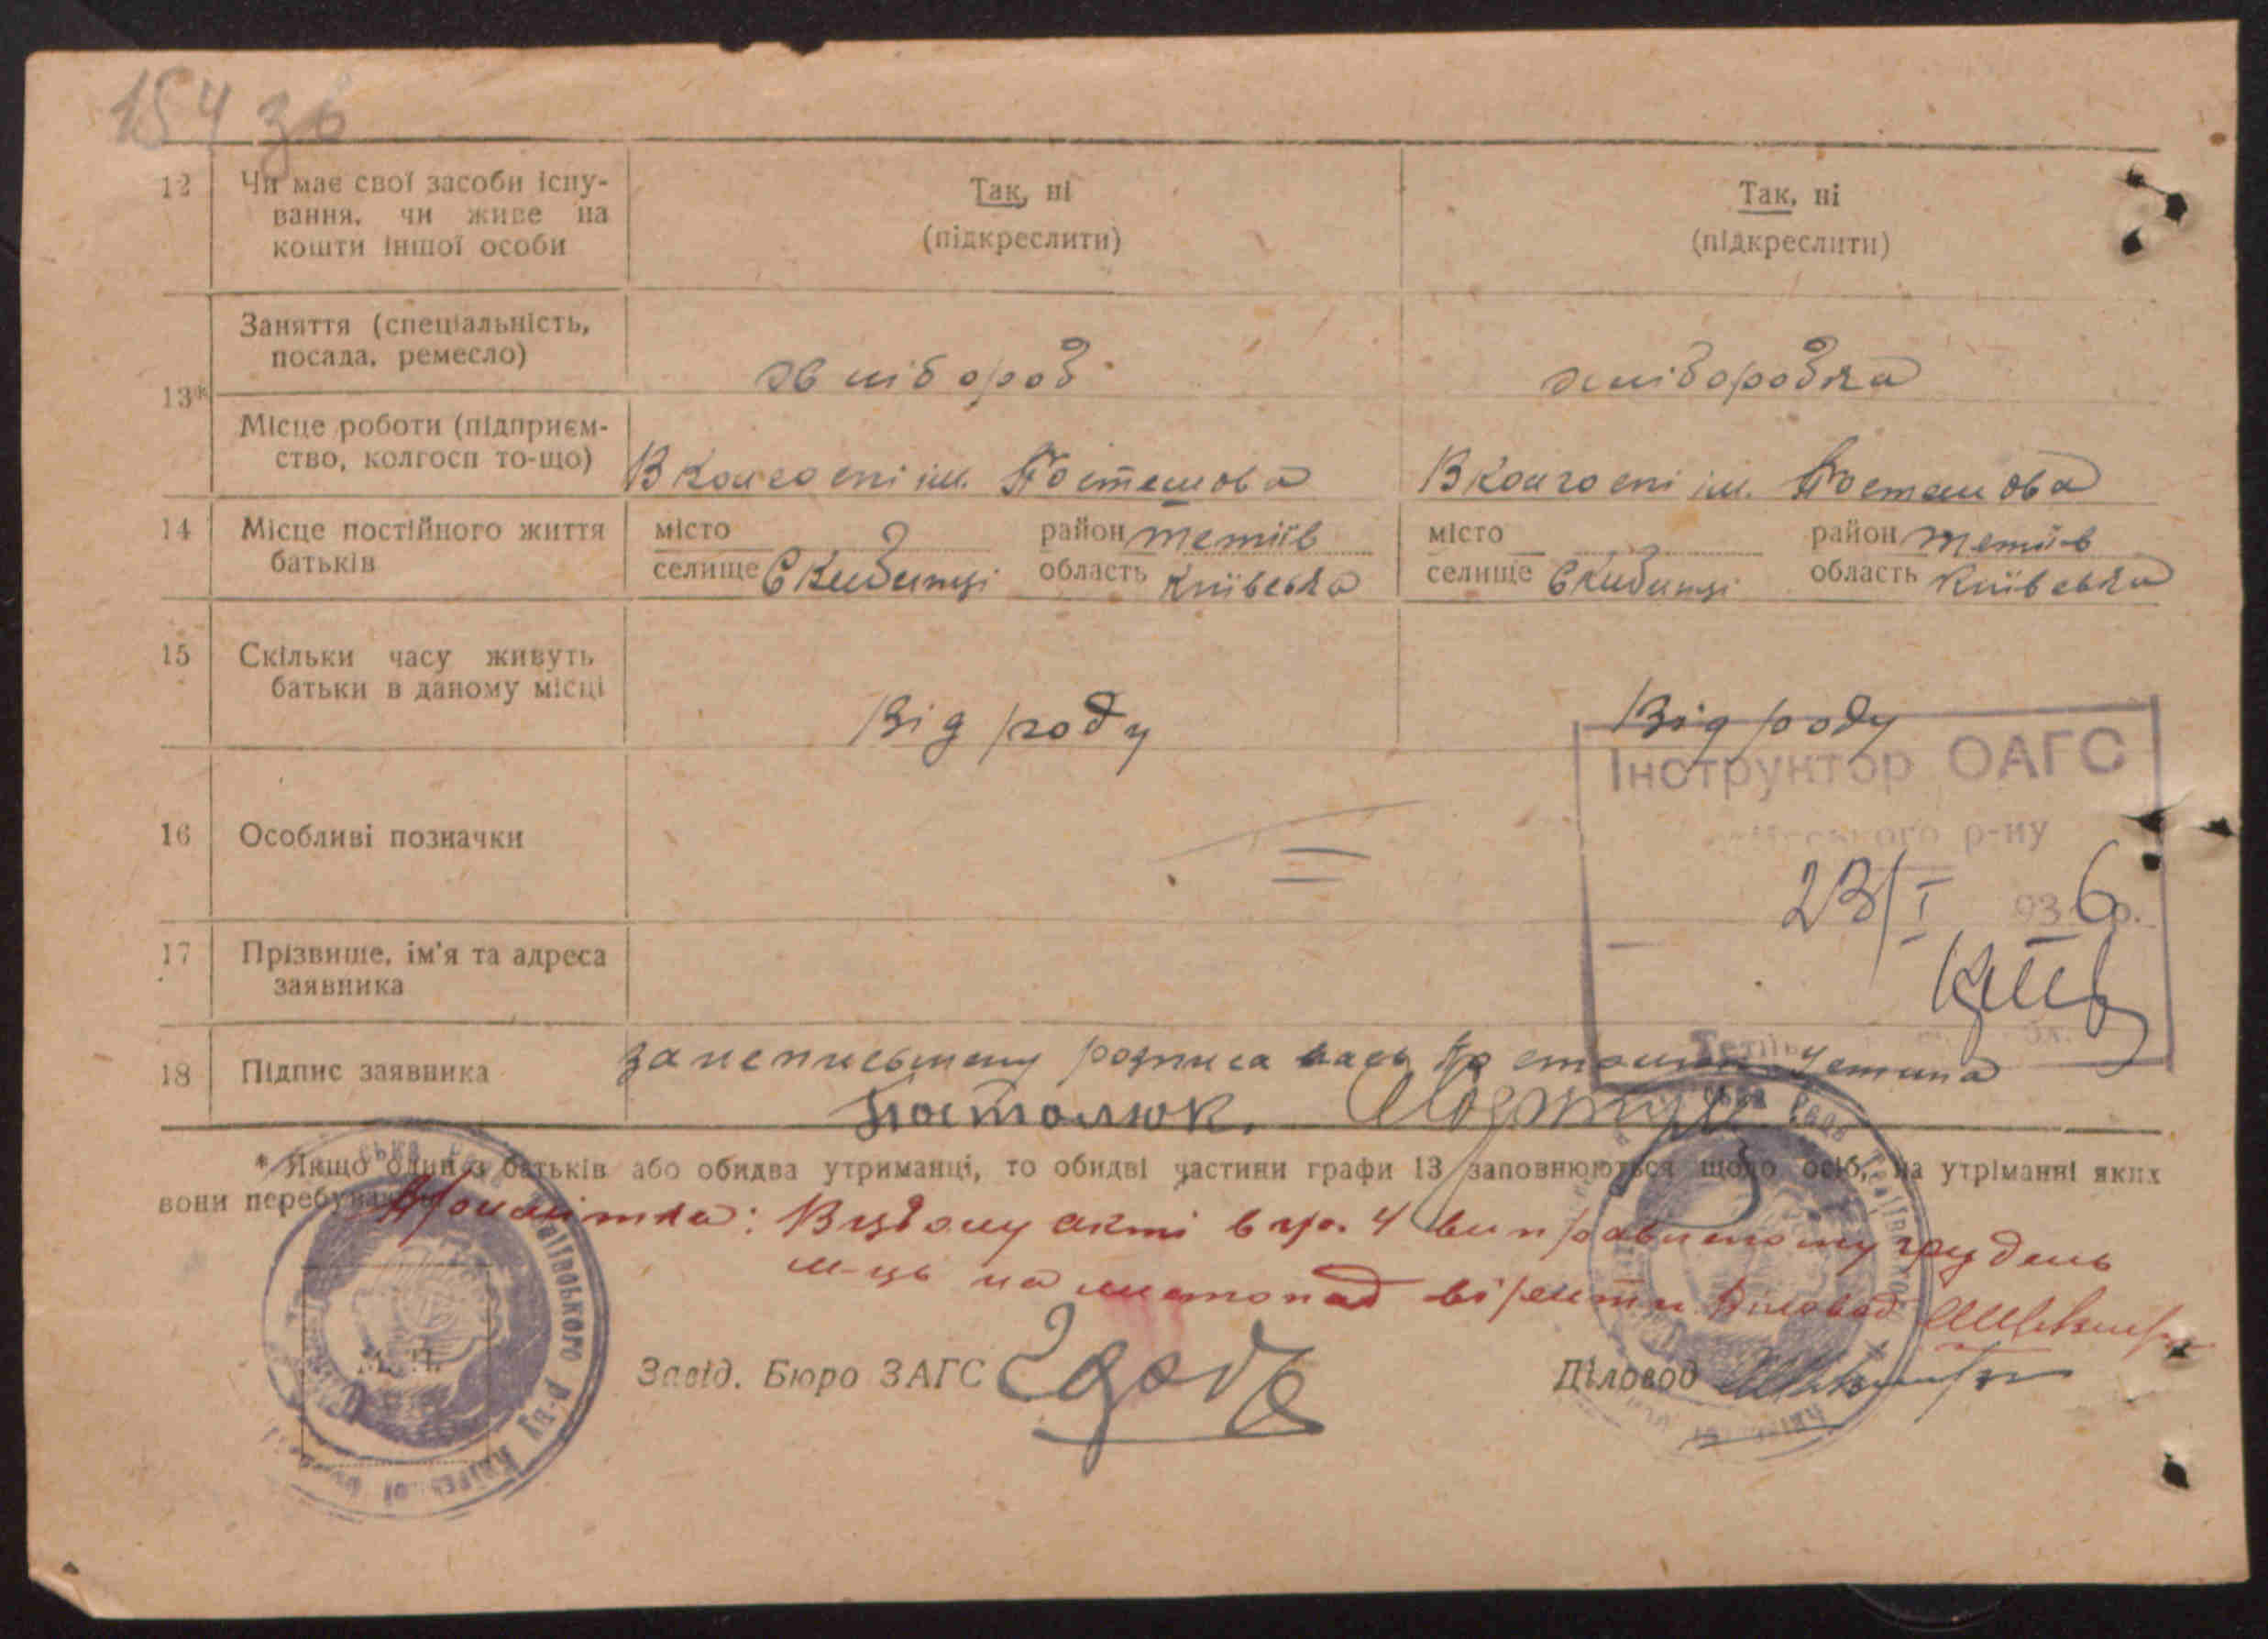 154 зв
12 Чи має свої засоби існу-
вання, чи живе на
кошти іншої особи
Так, ні
(підкреслити)
Так, ні
(підкреслити)
13*
Заняття (спеціальність,
посада, ремесло)
хлібороб
хліборобка
Місце роботи (підприєм-
ство, колгосп то-що)
В колгоспі ім. Постишова
В колгоспі ім. Постишова
14 Місце постійного життя
батьків
місто
селище Скибинці
район Тетіїв
область Київська
місто
селище Скибинці
район Тетіїв
область Київська
15 Скільки часу живуть
батьки в даному місці
Від роду
Від роду
Інструктор ОАГС
р-ну
23/I 936 р.
16 Особливі позначки
17 Прізвище, ім'я та адреса
заявника
18 Підпис заявника
за неписьмену розписалась Устина
Костолюк.
* Якщо один з батьків або обидва утриманці, то обидві частини графи 13 заповнюються щодо осіб, на утріманні яких
вони перебувають
Примітка: В цьому акті в гр. 4 виправленому грудень
м-ць на листопад вірити Діловод
М. П.
Завід. Бюро ЗАГС
Діловод
Тетіївського р-ну Київської